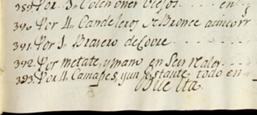 389. Por 3. Colchones Viejos . . . . en
390. Por 11. Candeleros de Bronce
391. Por 1. Bracero de Cobre . . . . . .
392. Por metate, y mano en Seis reales . . . .
393. Por 11. Camapes, y un estante todo en
Buelta